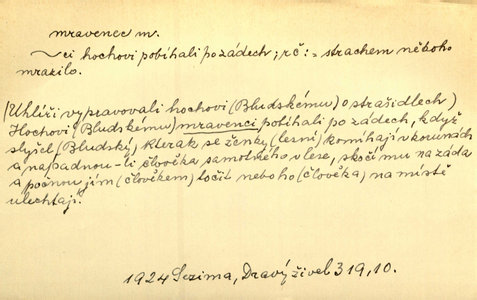 mravenec m.
~ci hochovi pobíhali po zádech; rč: = strachem ně koho
mrazilo.
(Uhlíři vypravovali hochovi (Bludskému) o strašidlech)
Hochovi (Bludskému) mravenci pobíhali po zádech, když
slyšel (Bludský) kterak se ženky (lesní) komíhají v korunách
a napadnou-li člověka samotného v lese, skočí mu na záda
a počnou jím (člověkem) točit neb oho (člověka) na místě
ulechtají."
1924 Sezima, Dravý živel 319, 10.